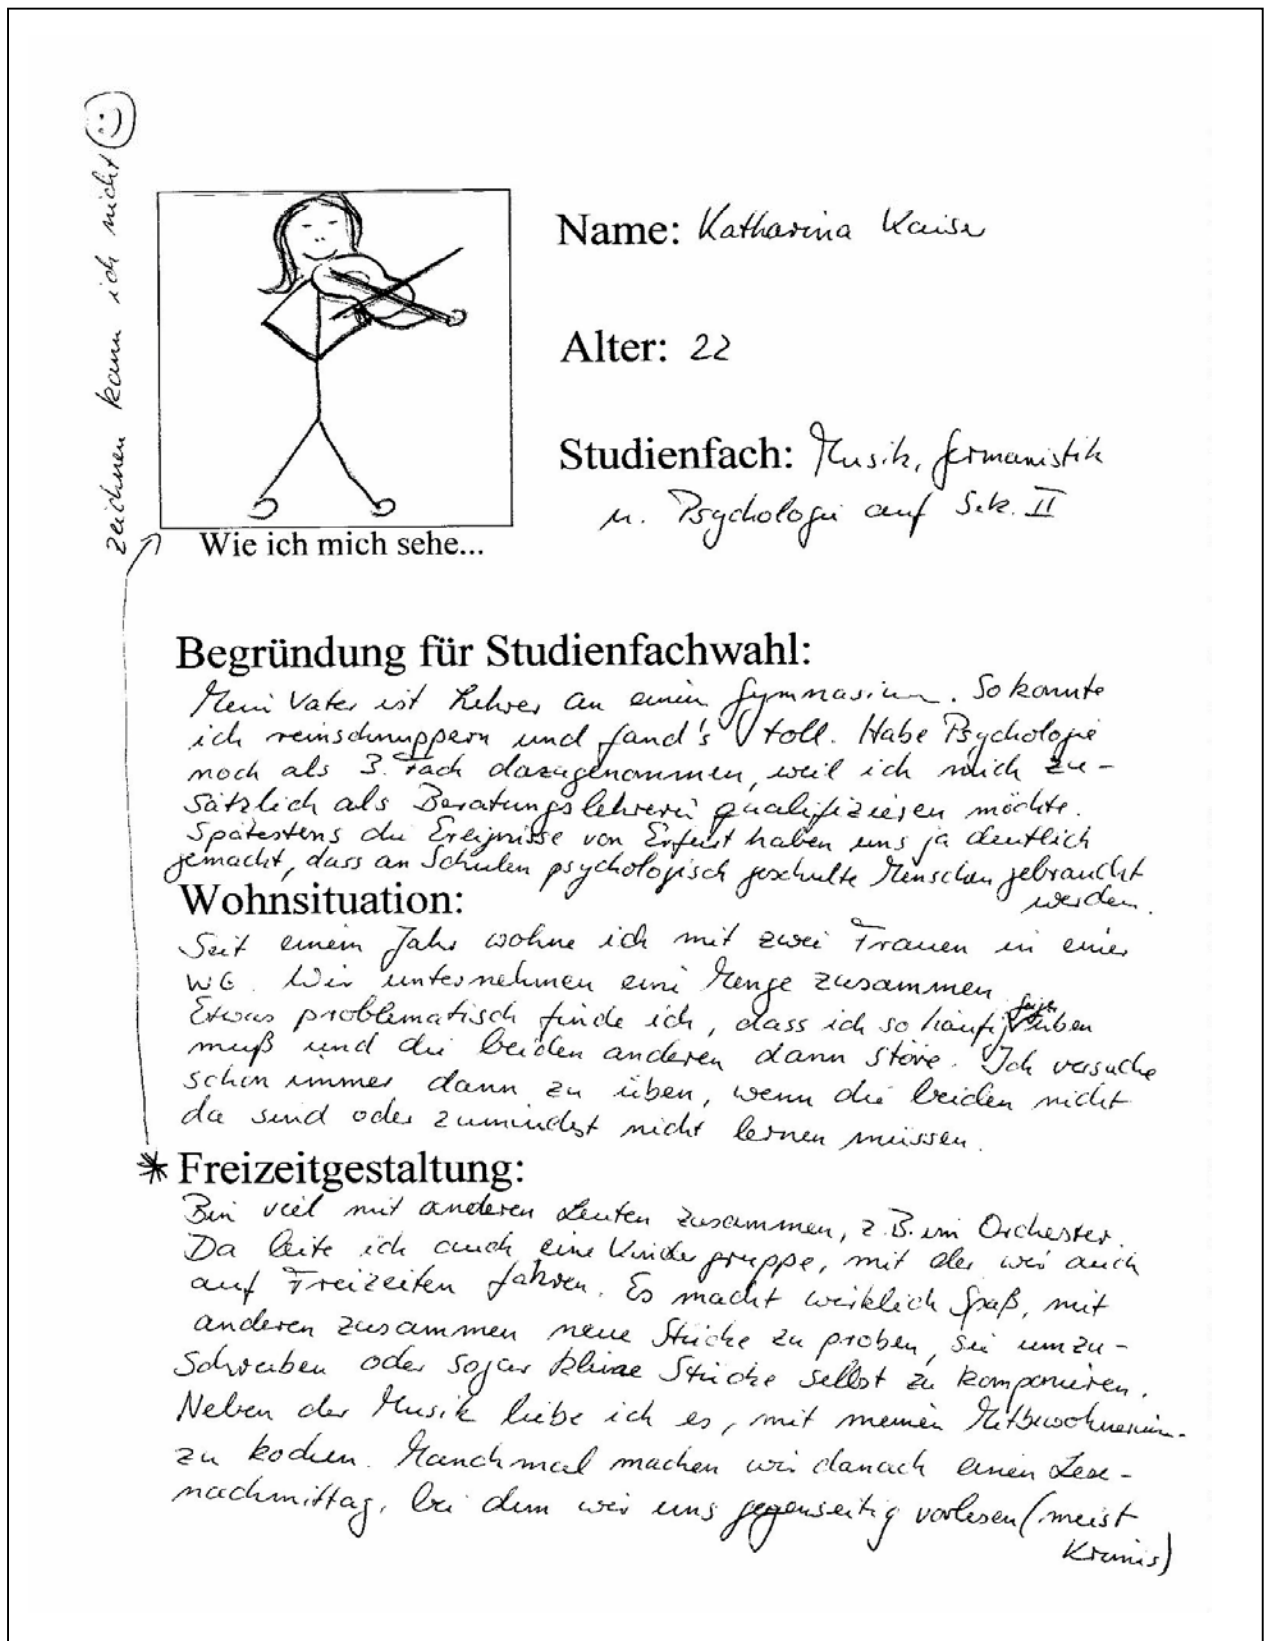 zeichnen kann ich nicht
Name: Katharina Kaiser
Alter: 22
Studienfach: Musik, Germanistik
u. Psychologie auf Sek. II
Wie ich mich sehe...
Begründung für Studienfachwahl:
Mein Vater ist Lehrer an einem Gymnasium. So konnte
ich reinschnuppern und fand's toll. Habe Psychologie
noch als 3. Fach dazugenommen, weil ich mich zu-
sätzlich als Beratungslehrerin qualifizieren möchte.
Spätestens die Ereignisse von Erfurt haben uns ja deutlich
gemacht, dass an Schulen psychologisch geschulte Menschen gebraucht
werden.
Wohnsituation:
Seit einem Jahr wohne ich mit zwei Frauen in einer
WG. Wir unternehmen eine Menge zusammen.
Etwas problematisch finde ich, dass ich so häufig Geige üben
muß und die beiden anderen dann störe. Ich versuche
schon immer dann zu üben, wenn die beiden nicht
da sind oder zumindest nicht lernen müssen.
* Freizeitgestaltung:
Bin viel mit anderen Leuten zusammen, z.B. im Orchester.
Da leite ich auch eine Kindergruppe, mit der wir auch
auf Freizeiten fahren. Es macht wirklich Spaß, mit
anderen zusammen neue Stücke zu proben, sie umzu-
schreiben oder sogar kleine Stücke selbst zu komponieren.
Neben der Musik liebe ich es, mit meinen Mitbewohnerinnen
zu kochen. Manchmal machen wir danach einen Lese-
nachmittag, bei dem wir uns gegenseitig vorlesen (meist
Krimis)